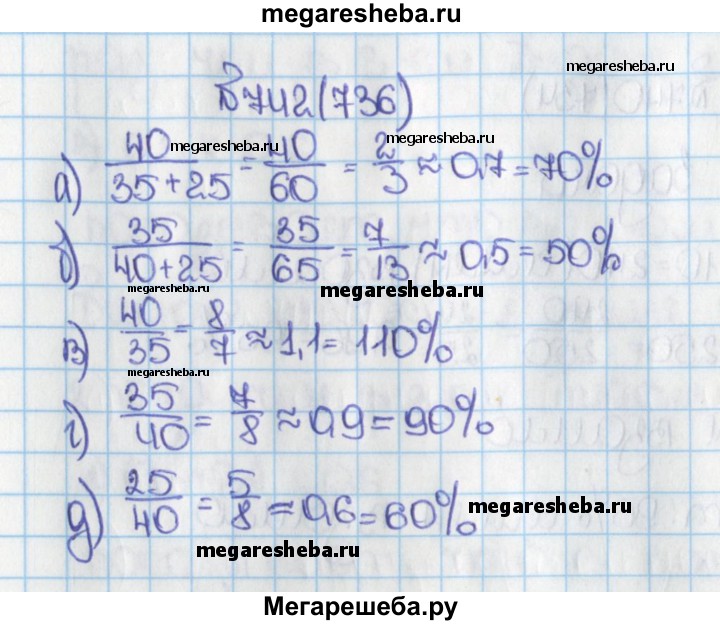 megaresheba.ru
megaresheba.ru
№742(736)
а) 40/(35+25) = 40/60 = 2/3 ≈ 0,7 = 70%
megaresheba.ru megaresheba.ru
б) 35/(40+25) = 35/65 = 7/13 ≈ 0,5 = 50%
megaresheba.ru megaresheba.ru
в) 40/35 = 8/7 ≈ 1,1 = 110%
megaresheba.ru
г) 35/40 = 7/8 ≈ 0,9 = 90%
д) 25/40 = 5/8 ≈ 0,6 = 60%
megaresheba.ru
megaresheba.ru
Мегарешеба.ру